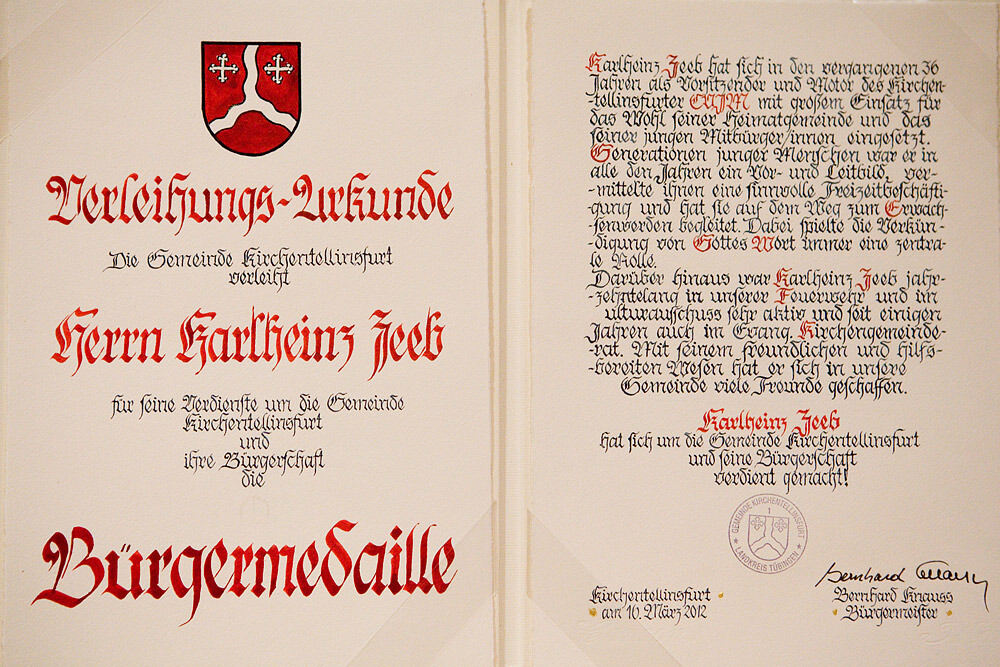 Verleihungs-Urkunde
Die Gemeinde Kirchentellinsfurt
verleiht
Herrn Karlheinz Zeeb
für seine Verdienste um die Gemeinde
Kirchentellinsfurt
und
ihre Bürgerschaft
die
Bürgermedaille
Karlheinz Zeeb hat sich in den vergangenen 36
Jahren als Vorsitzender und Motor des Kirchen-
-tellinsfurter CVJM mit großem Einsatz für
das Wohl seiner Heimatgemeinde und das
seiner jungen Mitbürger/innen eingesetzt.
Generationen junger Menschen war er in
alle den Jahren ein Vor- und Leitbild, ver-
-mittelte ihnen eine sinnvolle Freizeitbeschäfti-
-gung und hat sie auf dem Weg zum Erwach-
-senwerden begleitet. Dabei spielte die Verkün-
-digung von Gottes Wort immer eine zentra-
le Rolle.
Darüber hinaus war Karlheinz Zeeb jahr-
-zehntelang in unserer Feuerwehr und im
ulturauschuss sehr aktiv und seit einigen
Jahren auch im Evang. Kirchengemeinde-
-rat. Mit seinem freundlichen und hilfs-
-bereiten Wesen hat er sich in unsere
Gemeinde viele Freunde geschaffen.
Karlheinz Zeeb
hat sich um die Gemeinde Kirchentellinsfurt
und seine Bürgerschaft
verdient gemacht!
GEMEINDE KIRCHENTELLINSFURT
1
LANDKREIS TÜBINGEN
Bernhard Knauss
Kirchentellinsfurt
am 16. März 2012
Bernhard Knauss
Bürgermeister